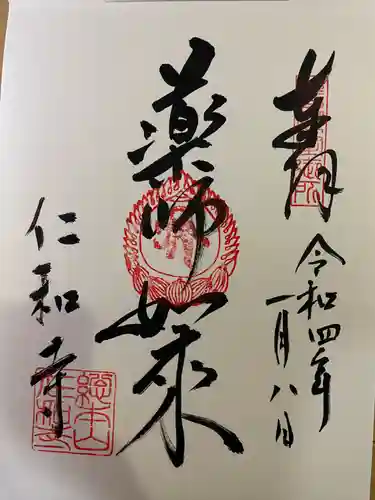 奉拝
令和四年
一月八日
薬師如来
仁和寺
総本山
仁和寺